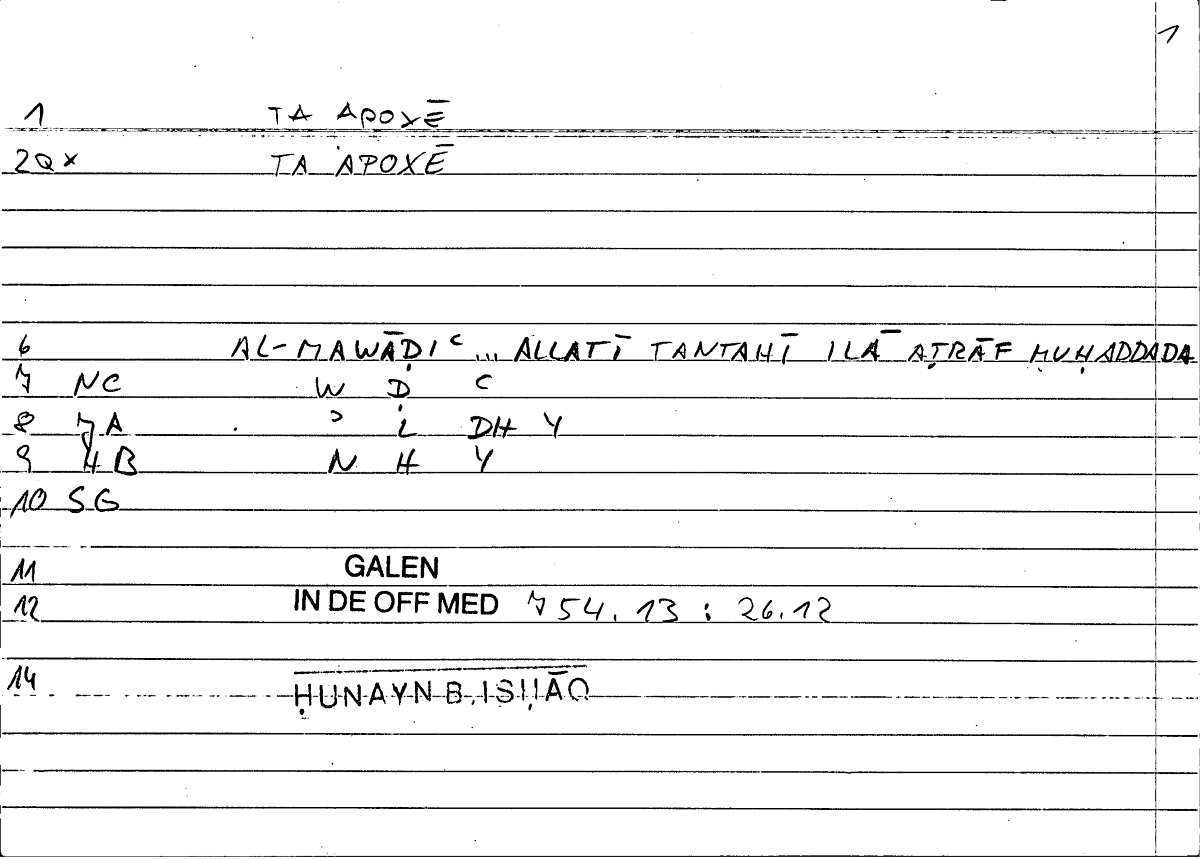 1
1 TA APOXĒ
2QX TA APOXĒ
6 AL-MAWĀḌIC ... ALLATĪ TANTAHĪ ILĀ AṬRĀF MUḤADDADA
7 NC W Ḍ C
8 7A Ɔ L DH Y
9 4B N H Y
10 SG
11 GALEN
12 IN DE OFF MED 754.13 : 26.12
14 ḤUNAYN B. ISḤĀQ